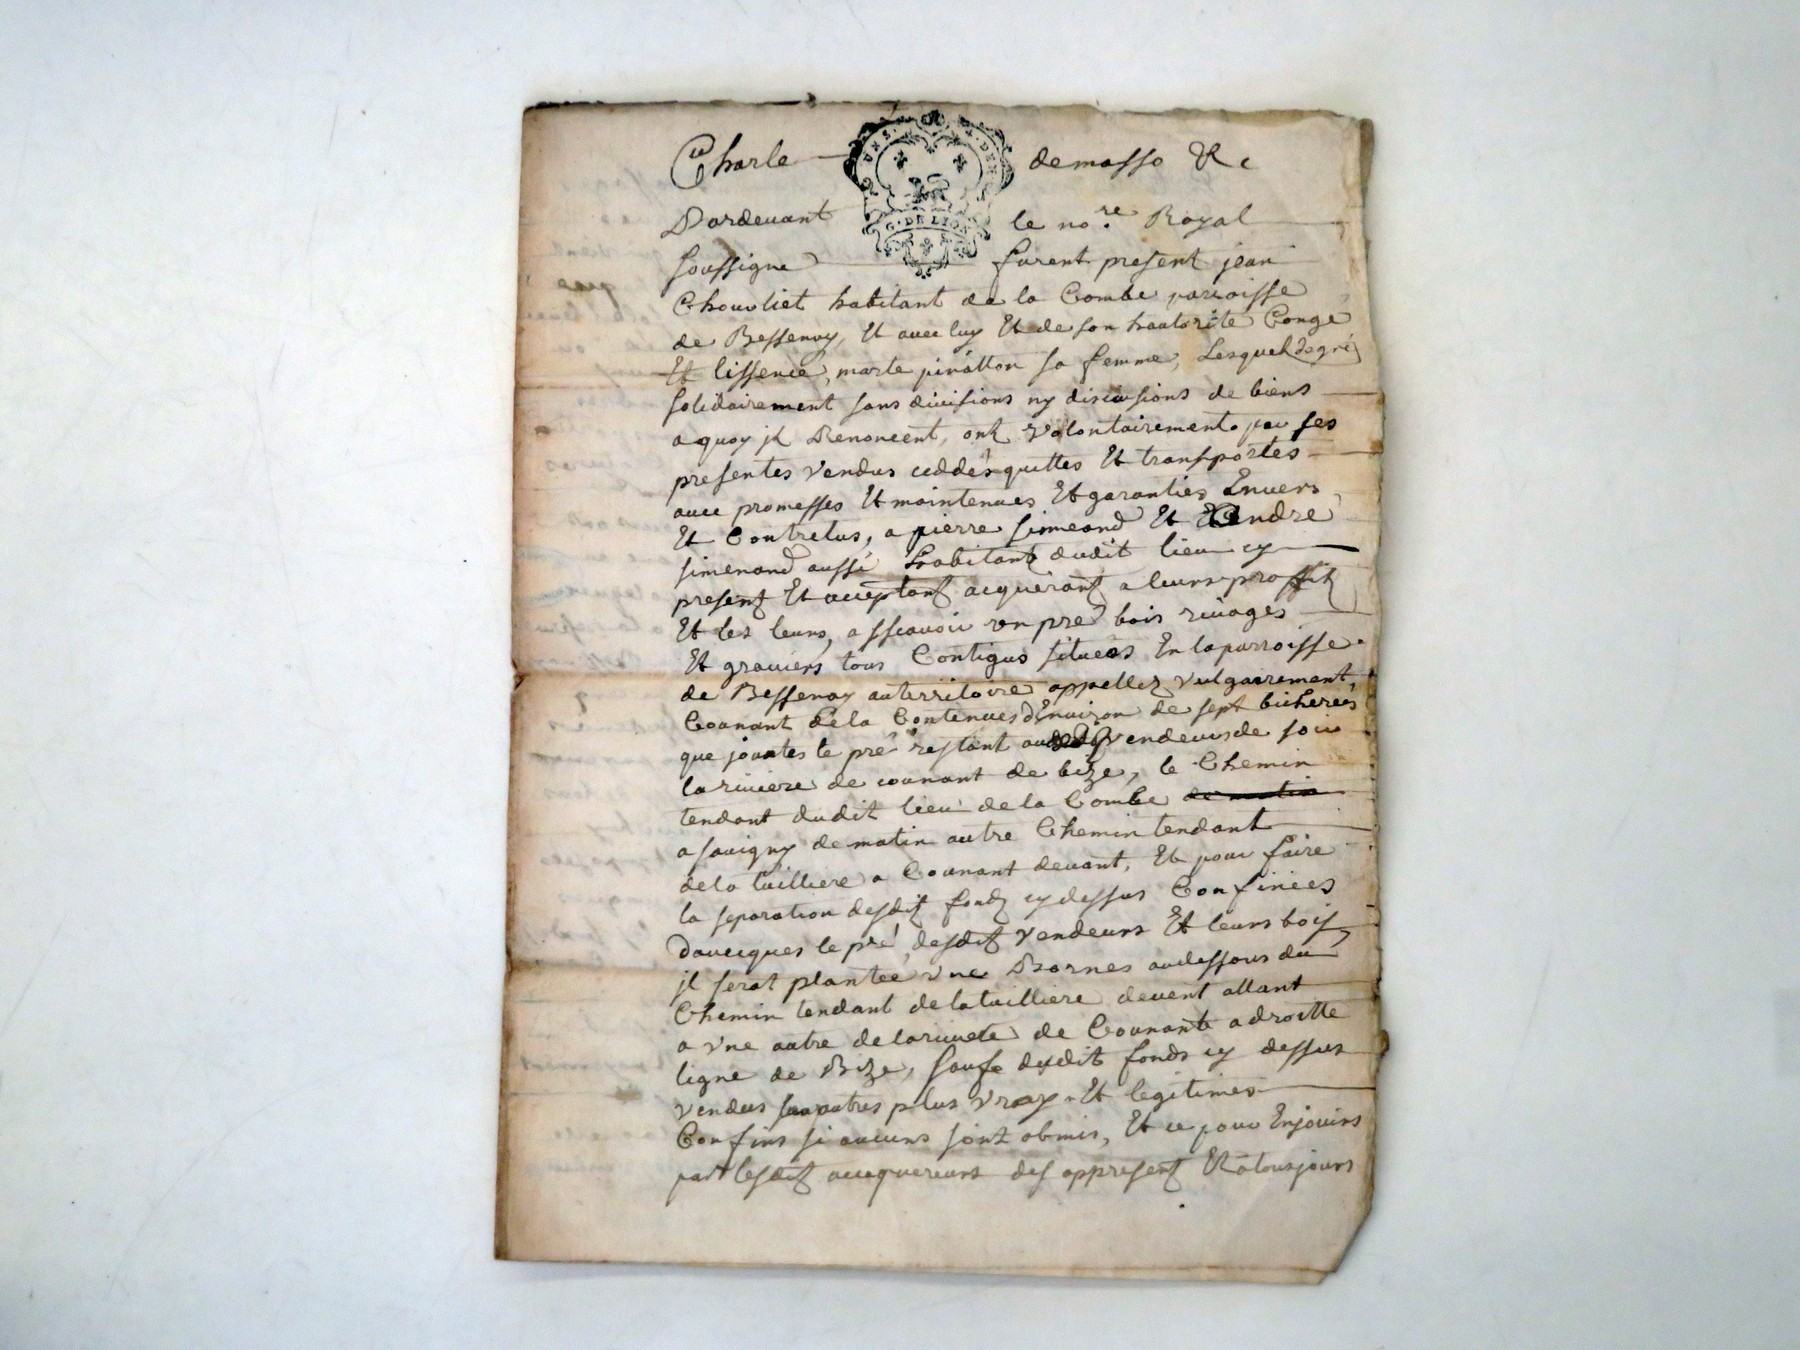 Charle demasso &c
Pardevant le no.re Royal
soussigne furent present jean
Chouvliet habitant de la Combe parroisse
de Bessenay, Et avec luy Et de son hautorite Conge
Et lissence, marte pinatton sa femme, Lesquels de gré
solidairement sans divisions ny discusions de biens
a quoy jl Renoncent, ont volontairement par ses
presentes vendus ceddés quittes Et transportes
avec promesses Et maintenues Et garanties Envers
Et Contretus, a pierre simeand Et Endre
simenand aussi habitant dudit lieu cy
present Et acceptant acquerant a leurs proffit
Et les leurs, a sscavoir un pre bois rivages
Et graviers tous Contigus situees En la parroisse
de Bessenay au territoire appellez vulgairement,
Counant de la Contenues d'Environ de sept bicherées
que jouxtes le pré restant vendeurs de soir
la riviere de counant de bize, le Chemin
tendant dudit lieu de la Combe de matin
a savigny de matin autre Chemin tendant
de la tuilliere a Counant devant, Et pour faire
la separation desdit fondz cy dessus Confinées
davecques le pré, desdit vendeurs Et leurs bois
jl serat plantée vne Bornes audessous du
Chemin tendant de la tuilliere devent allant
a vne autre de la rivete de Counant a droitte
ligne de Bize, saufe dudit fonds cy dessus
vendus ses autres plus vray Et legitimes
Confins si aucuns sont obmis, Et ce pour Enjouirs
par lesdit acquereurs des appresent Et a tousjours